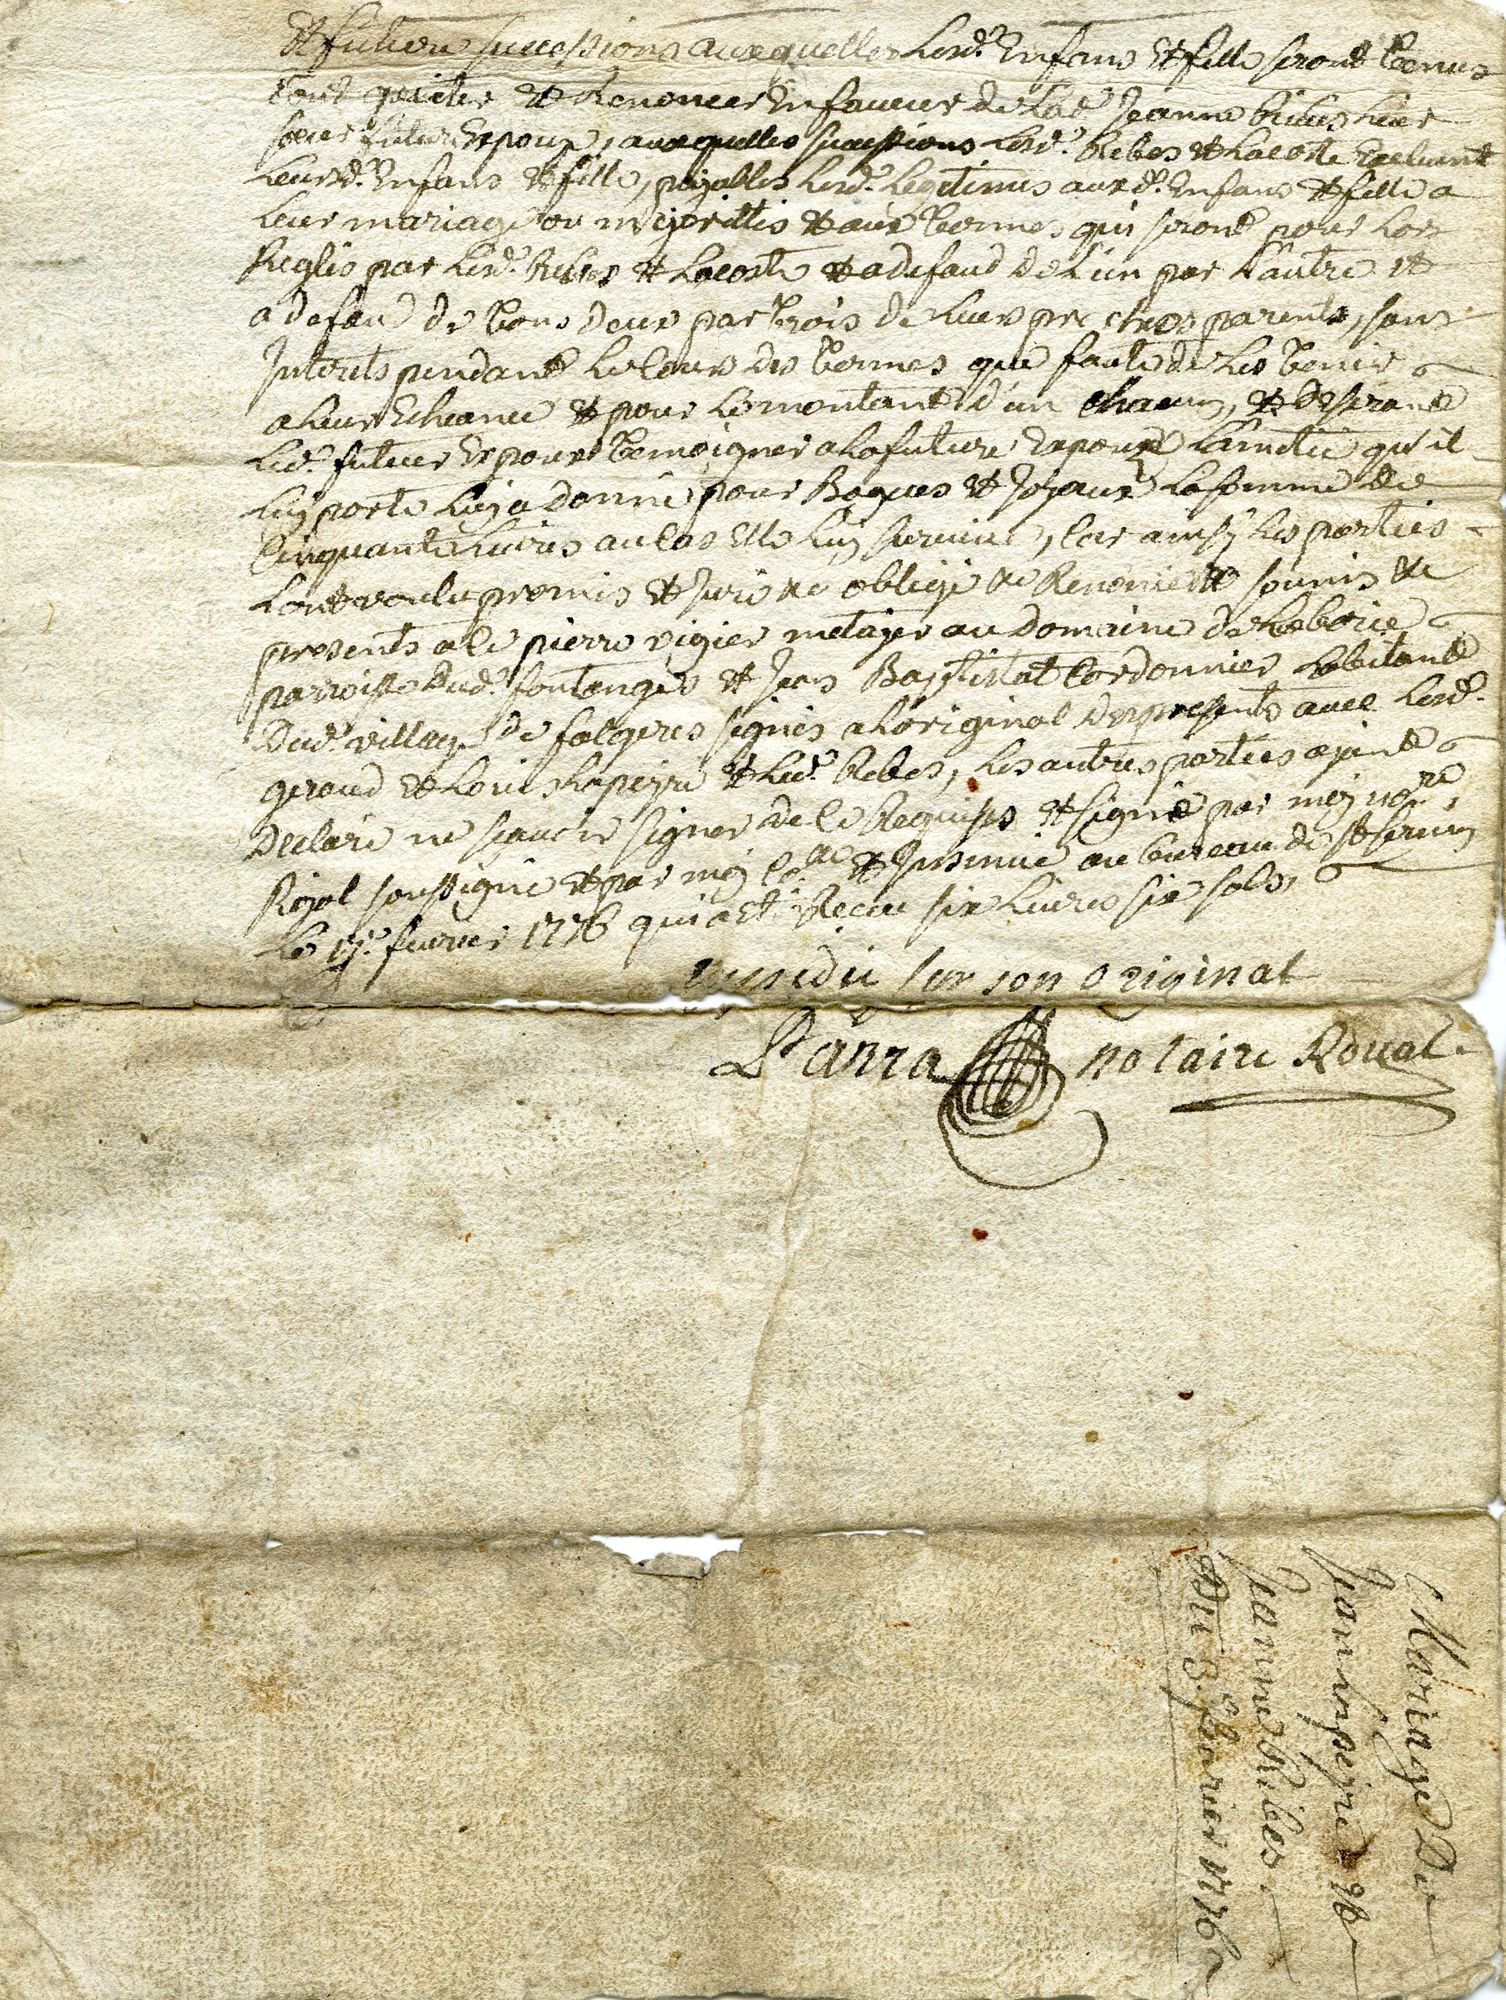 et future successions auxquelles lesd. Enfans et fille seront tenus
tout quitter et Renoncer En faveur de lad. Jeanne Ribes leur
sœur future Epouse, auxquelles successions lesd. Ribes et Lacoste Excluent
leursd. Enfans et fille, payables lesd. legitimes auxd. Enfans et fille a
leur mariage ou majorittés et aux termes qui seront pour lors
Reglés par lesd. Ribes et Lacoste et a defaud de l'un par l'autre et
a defaud de tous deux par trois de leurs prochos parents, sans
Interets pendant le cours des termes que faute de les tenir
a leur Echeance et pour le montant d'un chacun, et desirant
led. futeur Epoux temoigner a la future Epouse l'amitié qu'il
luy porte luy a donné pour Bagues et Joyaux la somme de
Cinquante livres au cas Elle luy survive, car ainsy les parties
l'ont voulu promis et Juré &c obligé &c Renoncé &c soumis &c
presents a ce pierre vigier metayer au domaine de Laborie
parroisse dud. fontanges et Jean Baptistat Cordonnier habitant
dud. village de falgeres signés a l'original des presents avec lesd.
geroud et Louis Lapeyre et led. Ribes, les autres parties ayant
Declaré ne sçavoir signer de ce Requises et signé par moy no.re
Royal soussigné et par moy C.lle et Insinué au bureau de St sernin
Le 17.e fevrier 1776 qui a Eté Receu six livres six sols,
Expedié sur son original
Parra notaire Royal
Mariage De
Jean Lapeyre et
Jeanne Ribes.
Du 3.e fevrier 1776